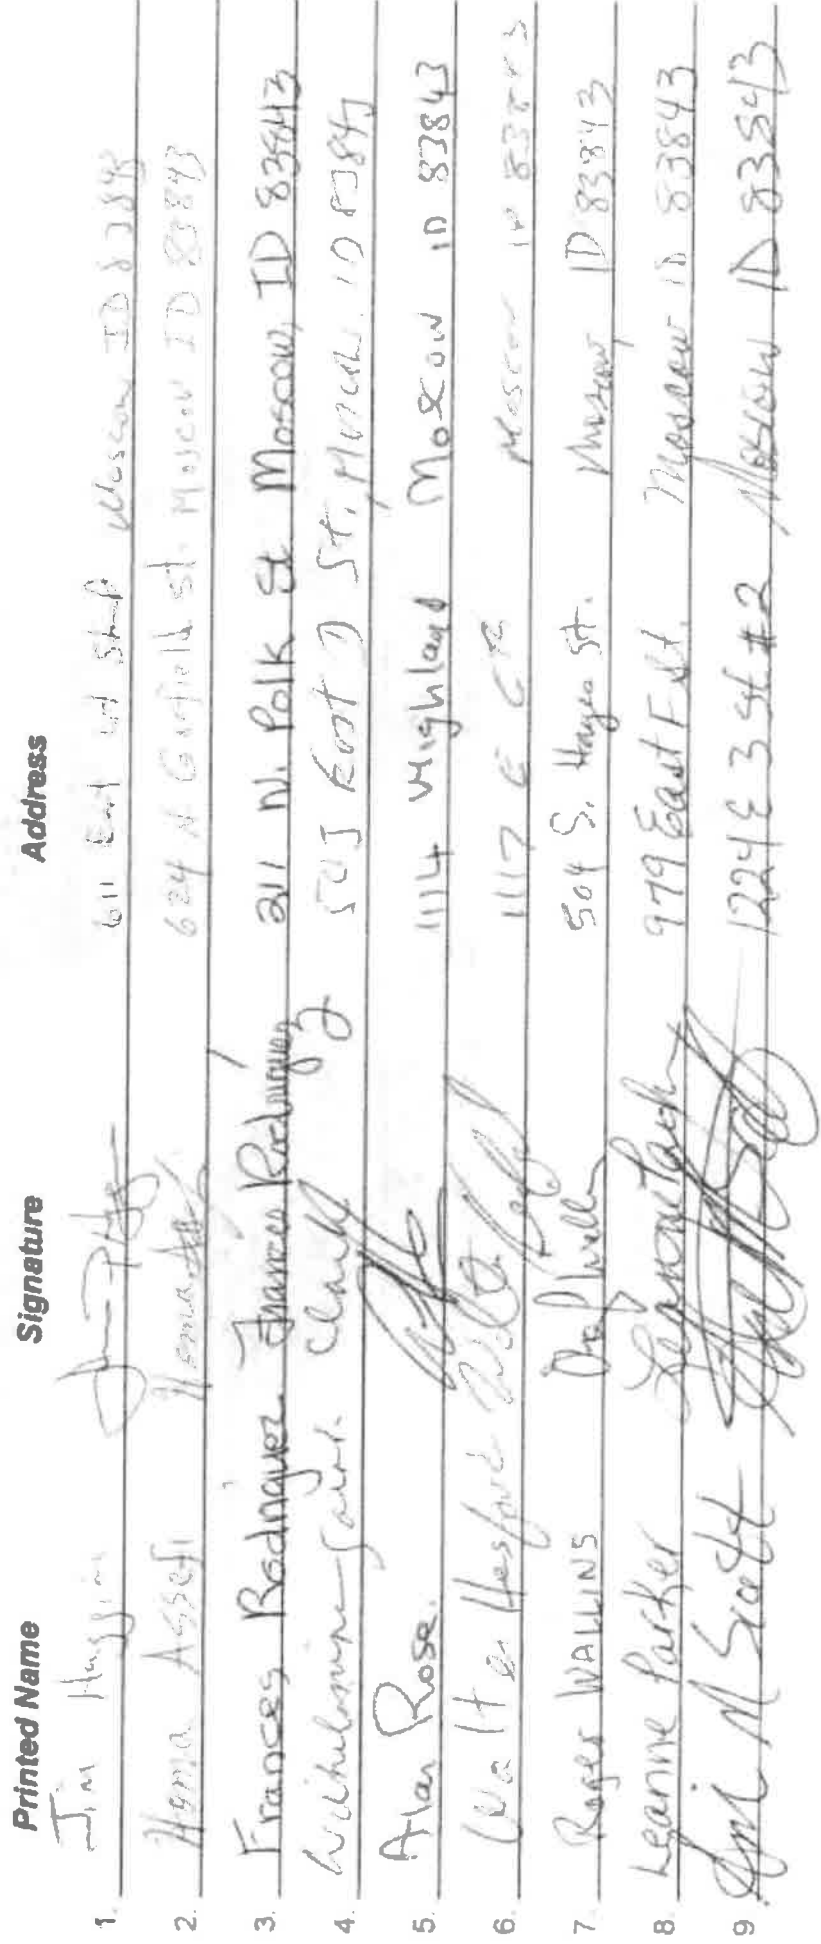 Printed Name Signature Address
1. Jim 611 East Moscow ID 83843
2. Hema Assefi Hema 624 N Garfield St. Moscow ID 83843
3. Frances Rodriguez Frances Rodriguez 211 N. Polk St Moscow, ID 83843
4. Clark East D St, Moscow, ID 83843
5. Alan Rose. 1114 Highland Moscow ID 83843
6. Walter 1117 E Moscow ID 83843
7. Roger WALLINS 504 S. Hayes St. Moscow ID 83843
8. Leanne Parker Leanne Parker 979 East F St. Moscow ID 83843
9. M Scott 1224 E 3 St #2 Moscow ID 83843